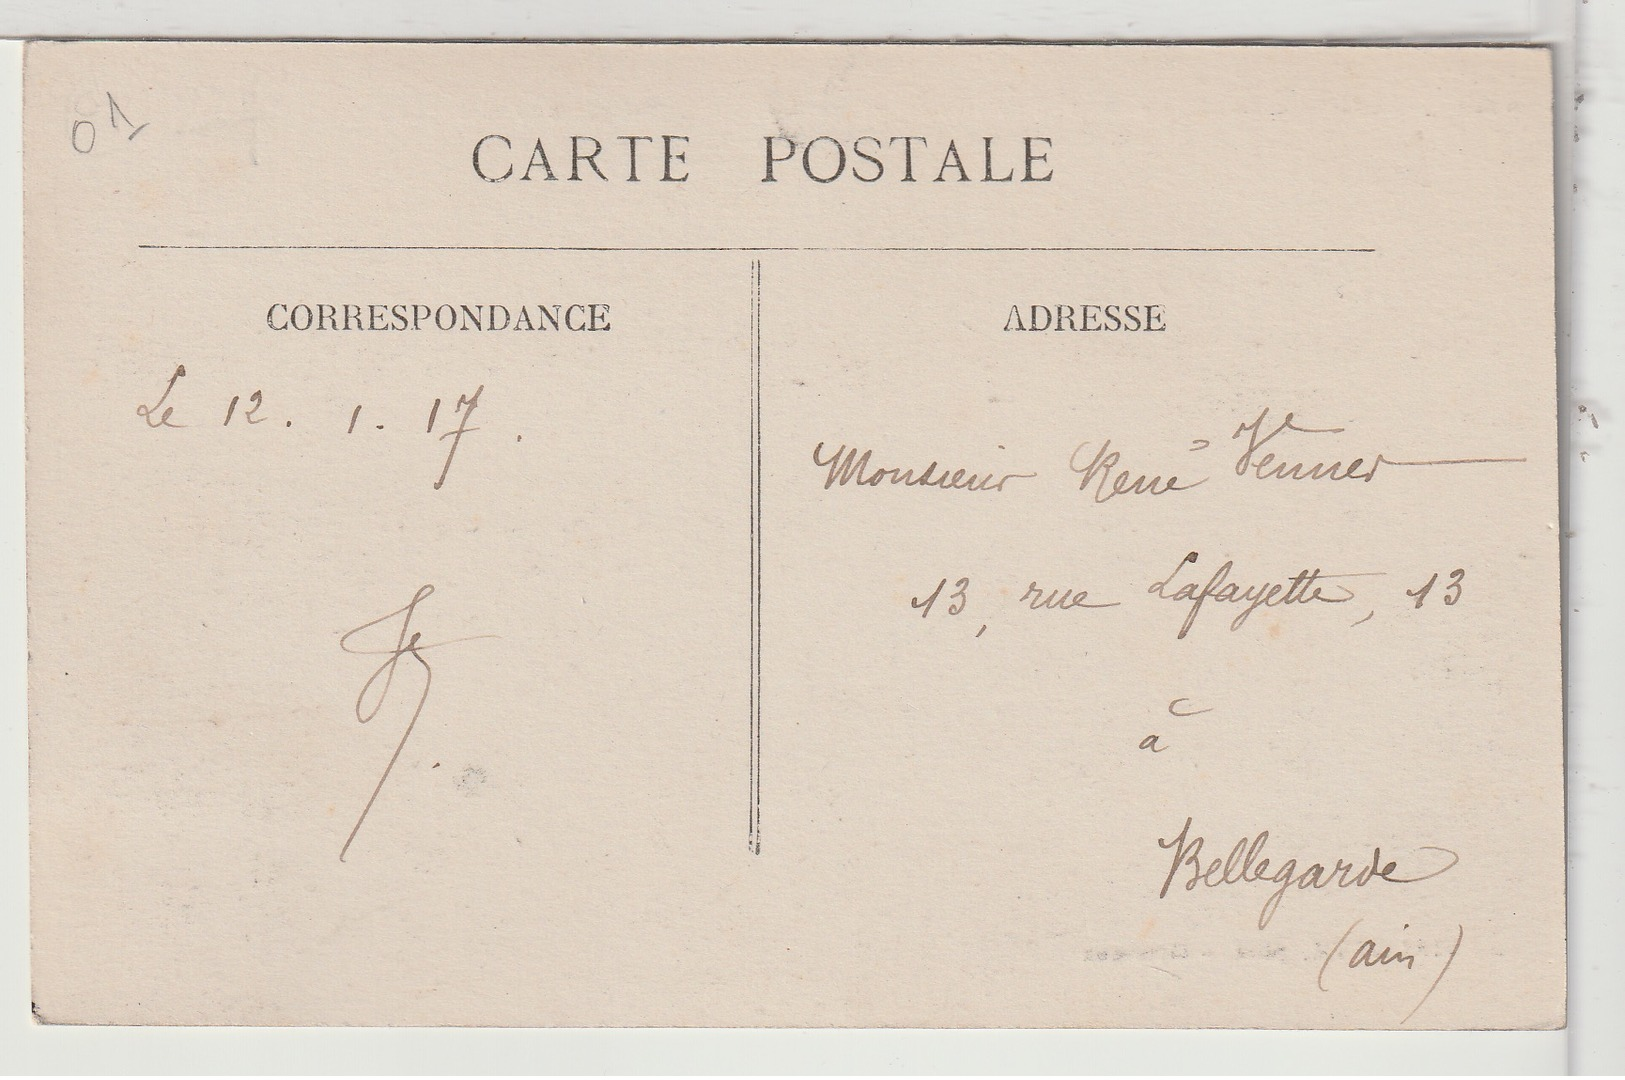 01
CARTE POSTALE
CORRESPONDANCE
Le 12. 1. 17.
ADRESSE
Monsieur René Venner
13, rue Lafayette, 13
à
Bellegarde
(ain)